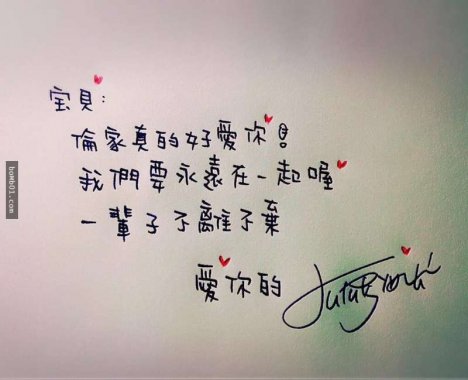 宝貝：
倫家真的好愛你！
我們要永遠在一起喔
一輩子不離不棄
愛你的
boMb01.com